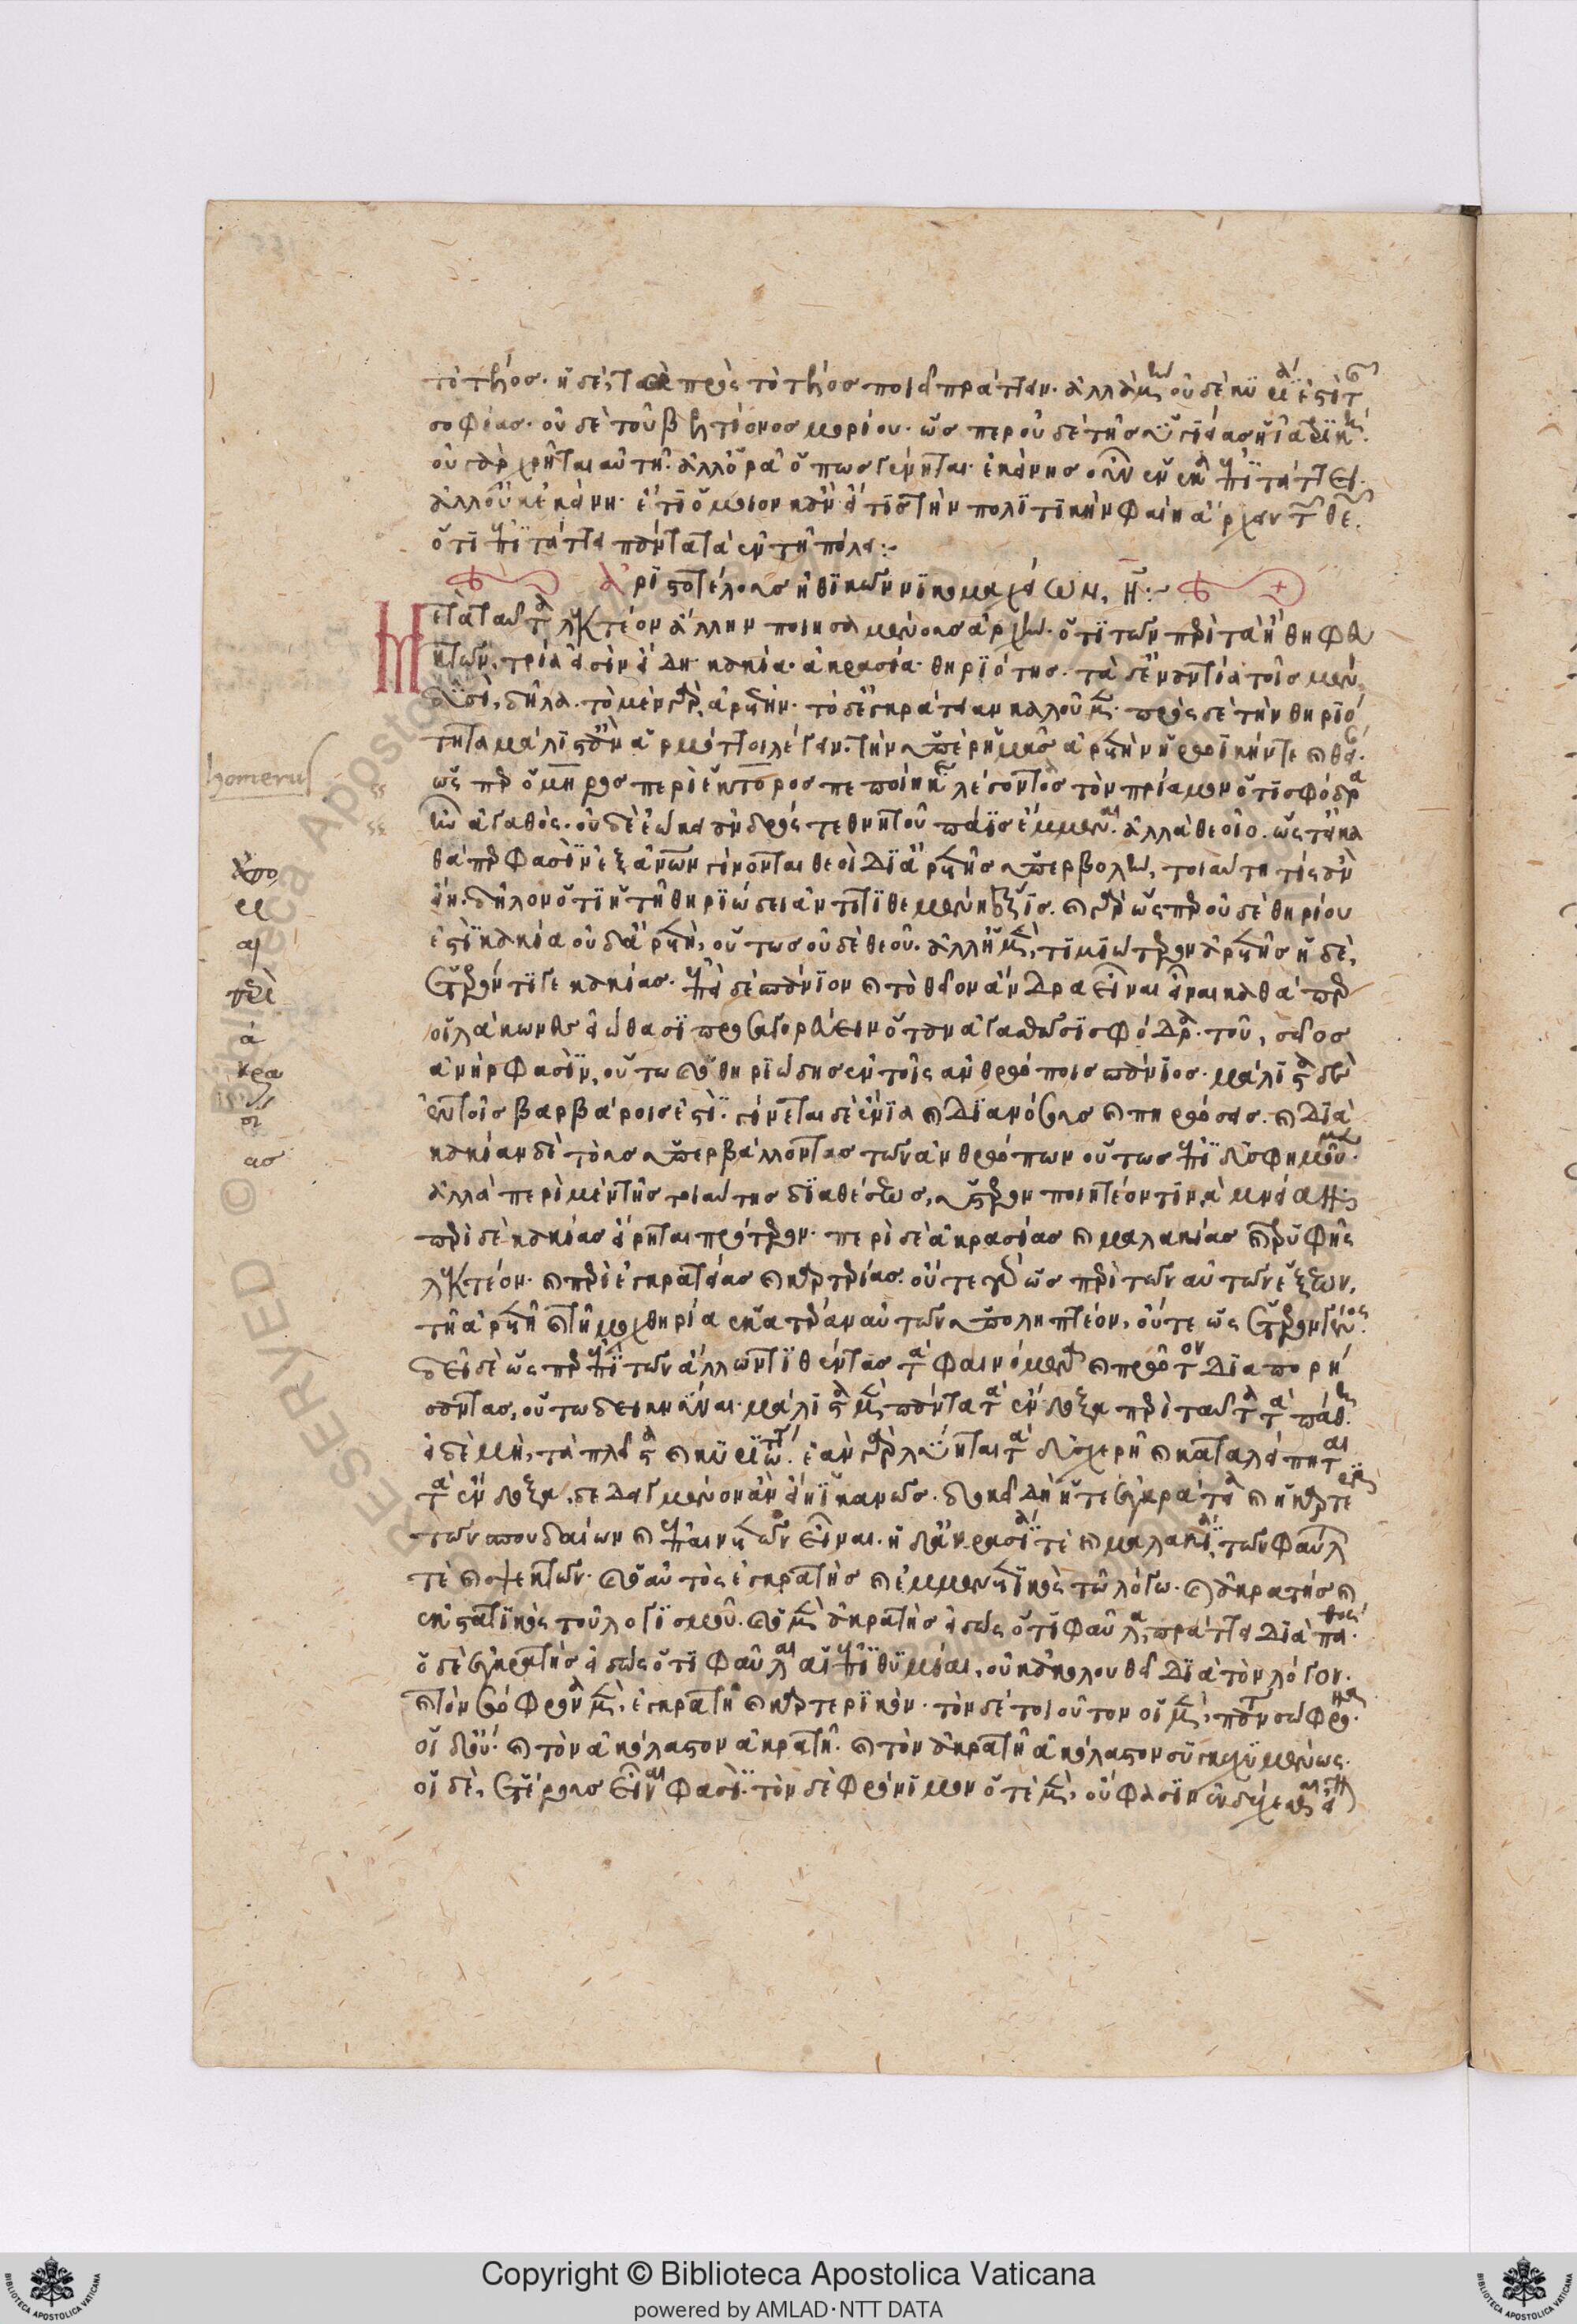 τὸ τέλος. ἡ δὲ, τὰ πρὸς τὸ τέλος ποιεῖ πράττειν. ἀλλὰ μὴν οὐδὲ κυρία ἐστὶ τῆς
σοφίας. οὐδὲ τοῦ βελτίονος μορίου. ὥσπερ οὐδὲ τῆς ὑγιείας ἡ ἰατρική.
οὐ γὰρ χρῆται αὐτῇ. ἀλλ' ὁρᾷ ὅπως γένηται. ἐκείνης οὖν ἕνεκα ἐπιτάττει.
ἀλλ' οὐκ ἐκείνῃ. ἔτι ὅμοιον κἂν εἴ τις τὴν πολιτικὴν φαίη ἄρχειν τῶν θεῶν.
ὅτι ἐπιτάττει πάντα τὰ ἐν τῇ πόλει:
ἀριστοτέλους ἠθικῶν νικομαχείων, η:
Μετὰ ταῦτα λεκτέον ἄλλην ποιησαμένους ἀρχήν. ὅτι τῶν περὶ τὰ ἤθη φευ
κτῶν, τρία εἰσὶν εἴδη. κακία. ἀκρασία. θηριότης. τὰ δ' ἐναντία τοῖς μὲν
δυσὶ, δῆλα. τὸ μὲν γὰρ, ἀρετὴν. τὸ δ' ἐγκράτειαν καλοῦμεν. πρὸς δὲ τὴν θηριό
τητα μάλιστ' ἂν ἁρμόττοι λέγειν. τὴν ὑπὲρ ἡμᾶς ἀρετὴν ἡρωϊκήν τε καὶ θείαν.
ὥσπερ ὅμηρος περὶ ἕκτορος πεποίηκε λέγοντα τὸν πρίαμον ὅτι σφόδρα
ἦν ἀγαθός. οὐδὲ ἐῴκει ἀνδρός τε θνητοῦ πάϊς ἔμμεναι. ἀλλὰ θεοῖο. ὥστ' εἰ κα
θάπερ φασὶν ἐξ ἀνθρώπων γίνονται θεοὶ δι' ἀρετῆς ὑπερβολὴν, τοιαύτη τίς ἂν
εἴη. δῆλον ὅτι ἡ τῇ θηριώδει ἀντιτιθεμένη ἕξις. καὶ γὰρ ὥσπερ οὐδὲ θηρίου
ἐστὶ κακία οὐδ' ἀρετὴ, οὕτως οὐδὲ θεοῦ. ἀλλ' ἡ μὲν, τιμιώτερον ἀρετῆς ἡ δὲ,
ἕτερόν τι γένος κακίας. ἐπεὶ δὲ σπάνιον καὶ τὸ θεῖον ἄνδρα εἶναι εἶναι καθάπερ
οἱ λάκωνες εἰώθασι προσαγορεύειν ὅταν ἀγασθῶσι σφόδρα του, σεῖος
ἀνὴρ φασὶν, οὕτω καὶ ὁ θηριώδης ἐν τοῖς ἀνθρώποις σπάνιος. μάλιστα δὲ
ἐν τοῖς βαρβάροις ἐστί. γίνεται δὲ ἔνια καὶ διὰ νόσους καὶ πηρώσεις. καὶ διὰ
κακίαν δὲ τοὺς ὑπερβάλλοντας τῶν ἀνθρώπων οὕτως ἐπιδυσφημοῦμεν.
ἀλλὰ περὶ μὲν τῆς τοιαύτης διαθέσεως, ὕστερον ποιητέον τινὰ μνείαν.
περὶ δὲ κακίας εἴρηται πρότερον. περὶ δὲ ἀκρασίας καὶ μαλακίας καὶ τρυφῆς
λεκτέον. καὶ περὶ ἐγκρατείας καὶ καρτερίας. οὔτε γὰρ ὡς περὶ τῶν αὐτῶν ἕξεων,
τῇ ἀρετῇ καὶ τῇ μοχθηρίᾳ ἑκατέραν αὐτῶν ὑποληπτέον, οὔτε ὡς ἕτερον γένος.
δεῖ δὲ ὥσπερ ἐπὶ τῶν ἄλλων τιθέντας τὰ φαινόμενα καὶ πρῶτον διαπορή
σαντας, οὕτω δεικνύναι. μάλιστα μὲν πάντα τὰ ἔνδοξα περὶ ταῦτα τὰ πάθη.
εἰ δὲ μὴ, τὰ πλεῖστα καὶ κυριώτατα. ἐὰν γὰρ λύηταί τε τὰ δυσχερῆ καὶ καταλείπηται
τὰ ἔνδοξα, δεδειγμένον ἂν εἴη ἱκανῶς. δοκεῖ δὴ ἥ τε ἐγκράτεια καὶ ἡ καρτερία
τῶν σπουδαίων καὶ ἐπαινετῶν εἶναι. ἡ δ' ἀκρασία τὲ καὶ μαλακία, τῶν φαύλων
τὲ καὶ ψεκτῶν. καὶ ὁ αὐτὸς ἐγκρατὴς καὶ ἐμμενετικὸς τῷ λόγῳ. καὶ ἀκρατὴς καὶ
ἐκστατικὸς τοῦ λογισμοῦ. καὶ ὁ μὲν ἀκρατὴς εἰδὼς ὅτι φαῦλα, πράττει διὰ πάθος.
ὁ δὲ ἐγκρατὴς εἰδὼς ὅτι φαῦλαι αἱ ἐπιθυμίαι, οὐκ ἀκολουθεῖ διὰ τὸν λόγον.
καὶ τὸν σώφρονα μὲν, ἐγκρατῆ καὶ καρτερικόν. τὸν δὲ τοιοῦτον οἱ μὲν, πάντα σώφρονα.
οἱ δ' οὔ. καὶ τὸν ἀκόλαστον ἀκρατῆ. καὶ τὸν ἀκρατῆ ἀκόλαστον συγκεχυμένως.
οἱ δὲ, ἑτέρους εἶναι φασί. τὸν δὲ φρόνιμον ὁτὲ μὲν, οὔ φασὶν ἐνδέχεσθαι εἶναι
homerus
ἀπο
ει
αι
περὶ
ἀ
κρα
σι
ασ